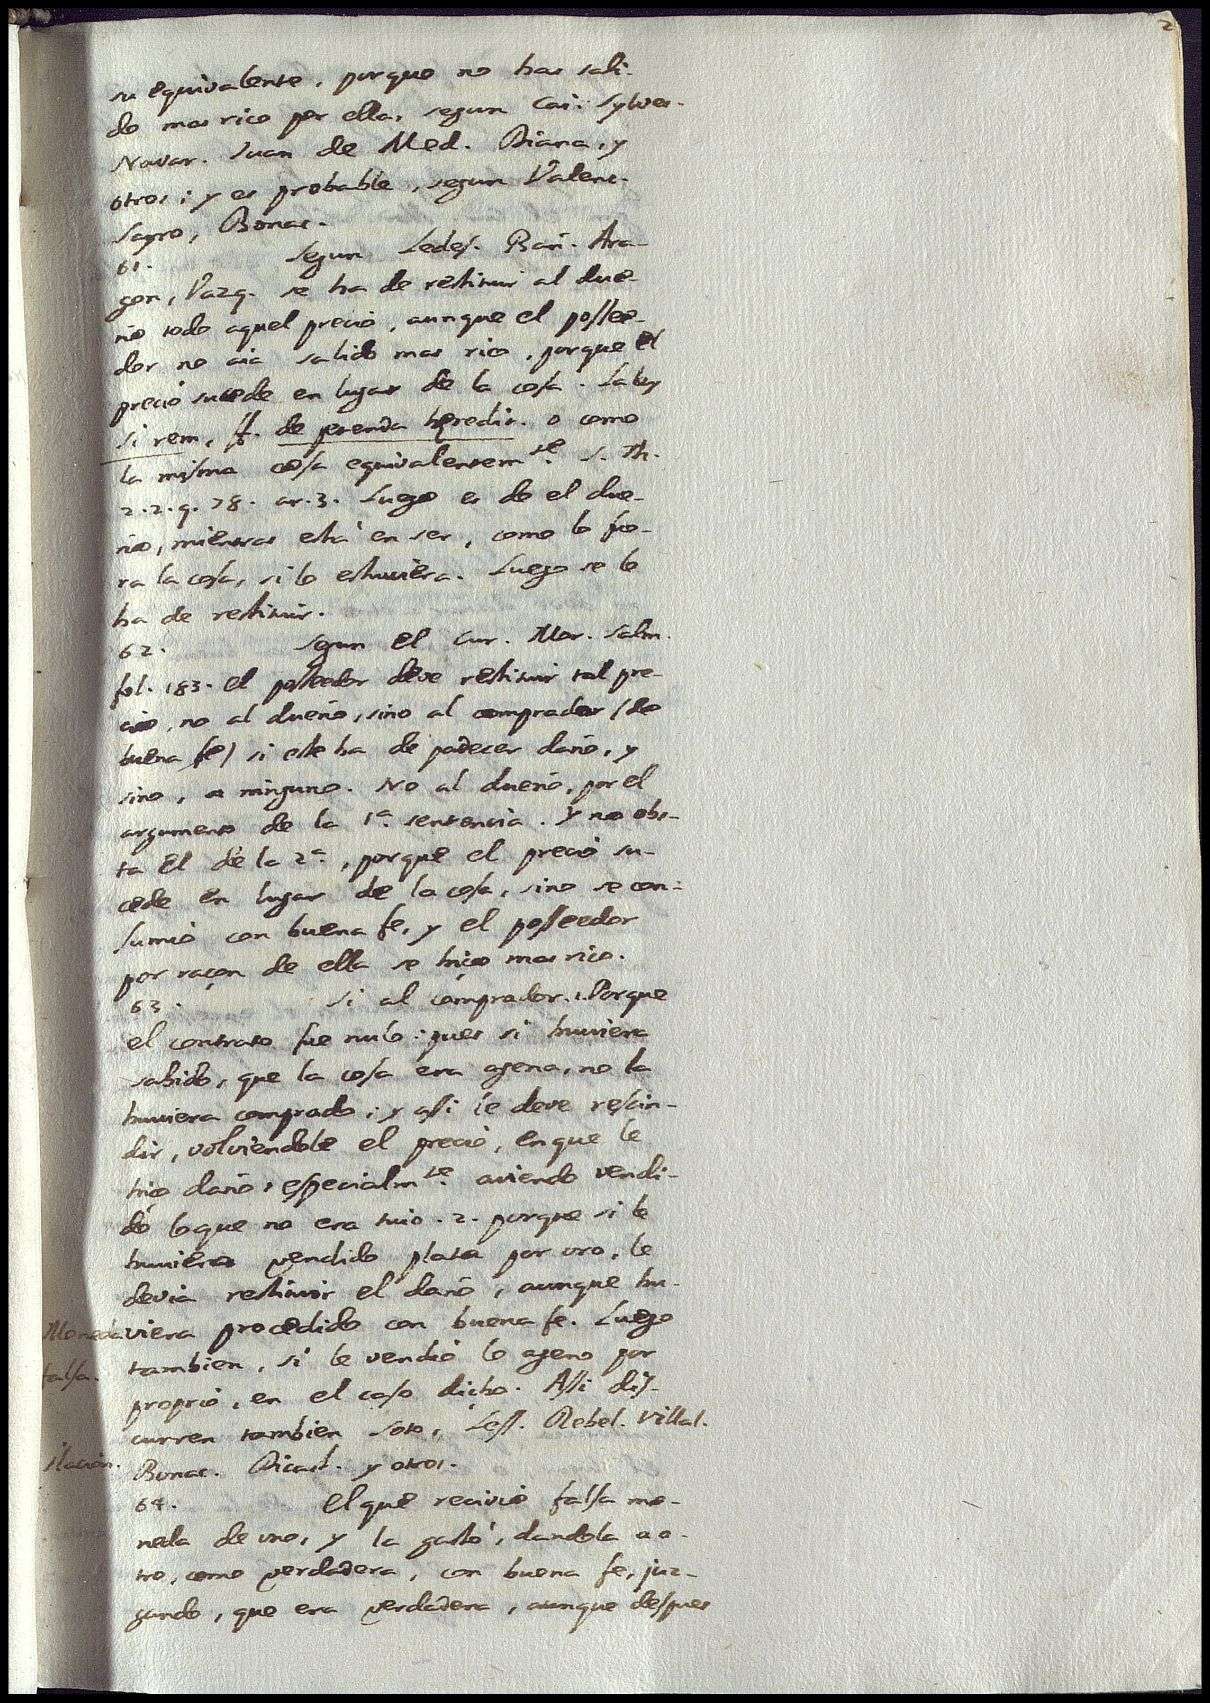 2
su equivalente, porque no has sali-
do mas rico por ella, segun Cai. Sylves.
Navar. Juan de Med. Diana, y
otros; y es probable, segun Valenc.
Sayro, Bonac.
61. Segun Ledes. Bañ. Ara-
gon, Vazq. se ha de restituir al due-
ño todo aquel precio, aunque el possee-
dor no aia salido mas rico, porque el
precio sucede en lugar de la cosa. La ley
si rem, ff. de heredit. o como
la misma cosa equivalentem.te S. Th.
2. 2. q. 78. ar. 3. Luego es de el due-
ño, mientras está en ser, como lo fue-
ra la cosa, si lo estuviera. Luego se le
ha de restituir.
62. Segun el Cur. Mor. Salm.
fol. 183. el posseedor deve restituir tal pre-
cio, no al dueño, sino al comprador (de
buena fe) si este ha de padecer daño, y
sino, a ninguno. No al dueño, por el
argumento de la 1.a sentencia. Y no obs-
ta el de la 2.a, porque el precio su-
cede en lugar de la cosa, sino se con-
sumió con buena fe, y el posseedor
por raçon de ella se hiço mas rico.
63. Si al comprador. 1. Porque
el contrato fue nulo: pues si huviera
sabido, que la cosa era agena, no la
huviera comprado; y assi le deve rescin-
dir, volviendole el precio, en que le
hiço daño, especialm.te aviendo vendi-
do lo que no era suio. 2. porque si le
huviera vendido plata por oro, le
devia restituir el daño, aunque hu-
Moneda viera procedido con buena fe. Luego
falsa. tambien, si le vendió lo ageno por
proprio, en el caso dicho. Assi dis-
curren tambien Soto, Less. Rebel. Villal.
Ilacion. Bonac. Dicast. y otros.
64. El que recivió falsa mo-
neda de uno, y la gastó, dandola a o-
tro, como verdadera, con buena fe, juz-
gando, que era verdadera, aunque despues